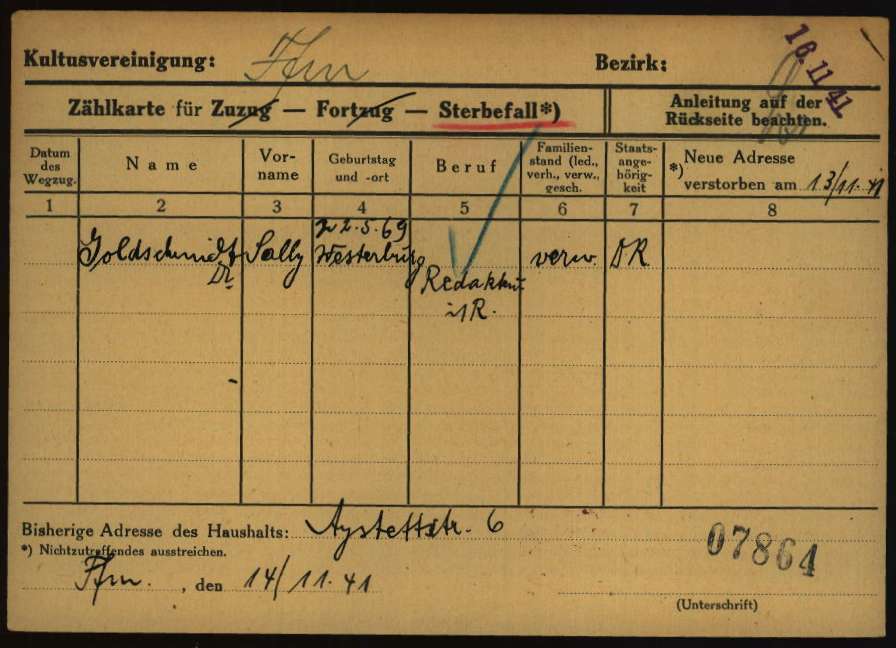 Kultusvereinigung: Ffm Bezirk:
16.11.41
Zählkarte für Zuzug — Fortzug — Sterbefall*)
Anleitung auf der
Rückseite beachten.
Datum
des
Wegzug.
Name
Vor-
name
Geburtstag
und -ort
Beruf
Familien-
stand (led.,
verh., verw.,
gesch.
Staats-
ange-
hörig-
keit
*) Neue Adresse
verstorben am 13/11.41
1 2 3 4 5 6 7 8
22.5.69
Goldschmidt Sally Westerburg verw. DR
Dr.
Redakteur
i/R.
Bisherige Adresse des Haushalts: 6
*) Nichtzutreffendes ausstreichen.
07864
Ffm. , den 14/11.41
(Unterschrift)